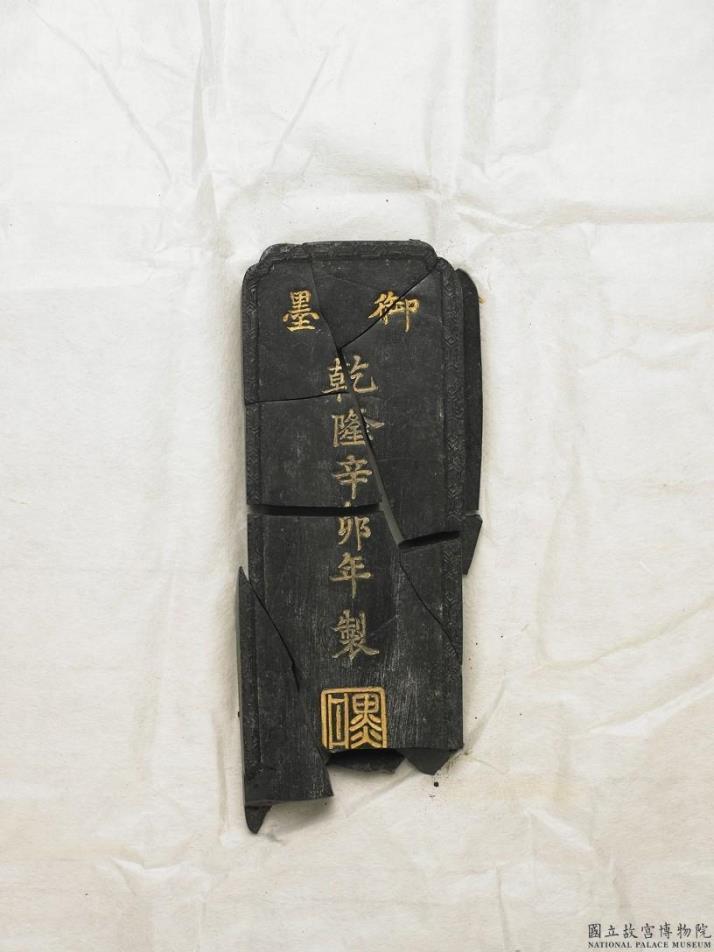 御墨
乾隆辛卯年製
國立故宮博物院
NATIONAL PALACE MUSEUM